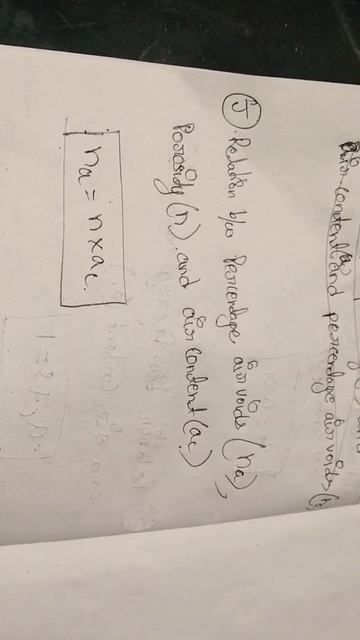 air content and percentage air voids
⑤. Relation b/w Percentage air voids (na),
Porosity (n) and air content (ac)
na = n × ac